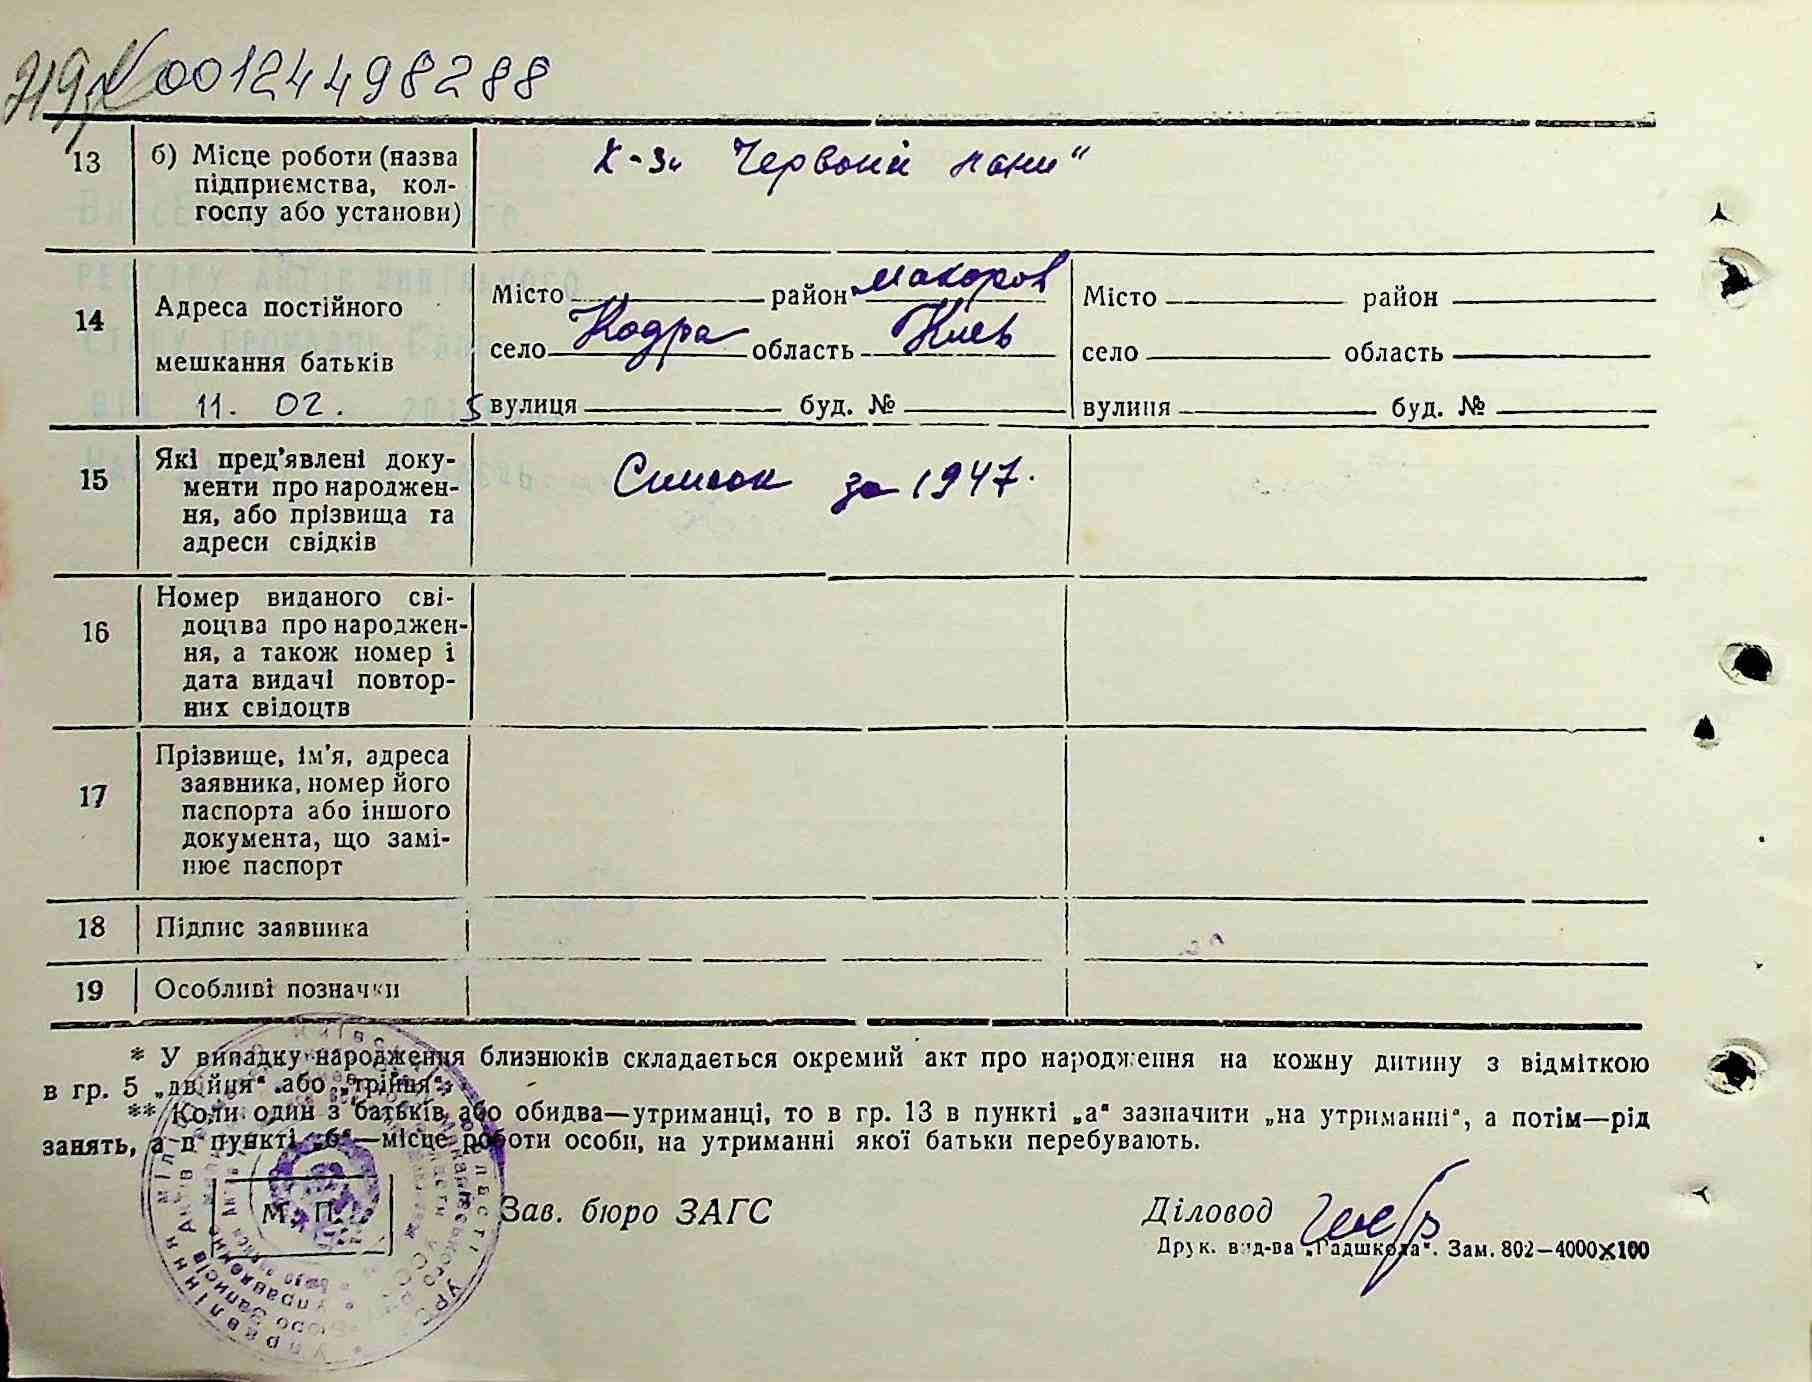 219 N 00124498288
13 б) Місце роботи (назва підприємства, кол-госпу або установи) К-з „Червоні лани“
14 Адреса постійного мешкання батьків
Місто район Макаров Місто район
село Кодра область Киев село область
11. 02. 5 вулиця буд. № вулиця буд. №
15 Які пред'явлені доку-
менти про народжен-
ня, або прізвища та
адреси свідків
Список за 1947.
16 Номер виданого сві-
доцтва про народжен-
ня, а також номер і
дата видачі повтор-
них свідоцтв
17 Прізвище, ім'я, адреса
заявника, номер його
паспорта або іншого
документа, що замі-
нює паспорт
18 Підпис заявника
19 Особливі позначки
* У випадку народження близнюків складається окремий акт про народження на кожну дитину з відміткою
в гр. 5 „двійня“ або „трійня“.
** Коли один з батьків або обидва—утриманці, то в гр. 13 в пункті „а“ зазначити „на утриманні“, а потім—рід
занять, а в пункті „б“—місце роботи особи, на утриманні якої батьки перебувають.
М. П. Зав. бюро ЗАГС Діловод
Друк. вид-ва „Радшкола“. Зам. 802—4000×100